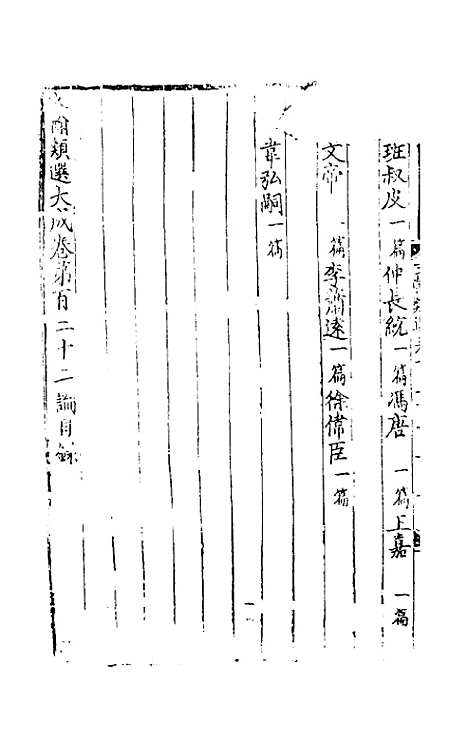 班叔皮一篇仲長統一篇馮唐一篇王嘉一篇
文帝一篇李蕭遠一篇徐偉臣一篇
韋弘嗣一篇
文翰類選大成卷第百二十二論目録